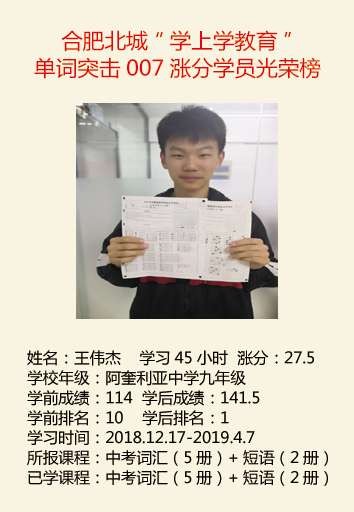 合肥北城“学上学教育”
单词突击 007 涨分学员光荣榜
姓名：王伟杰 学习 45 小时 涨分：27.5
学校年级：阿奎利亚中学九年级
学前成绩：114 学后成绩：141.5
学前排名：10 学后排名：1
学习时间：2018.12.17-2019.4.7
所报课程：中考词汇（5 册）+ 短语（2 册）
已学课程：中考词汇（5 册）+ 短语（2 册）